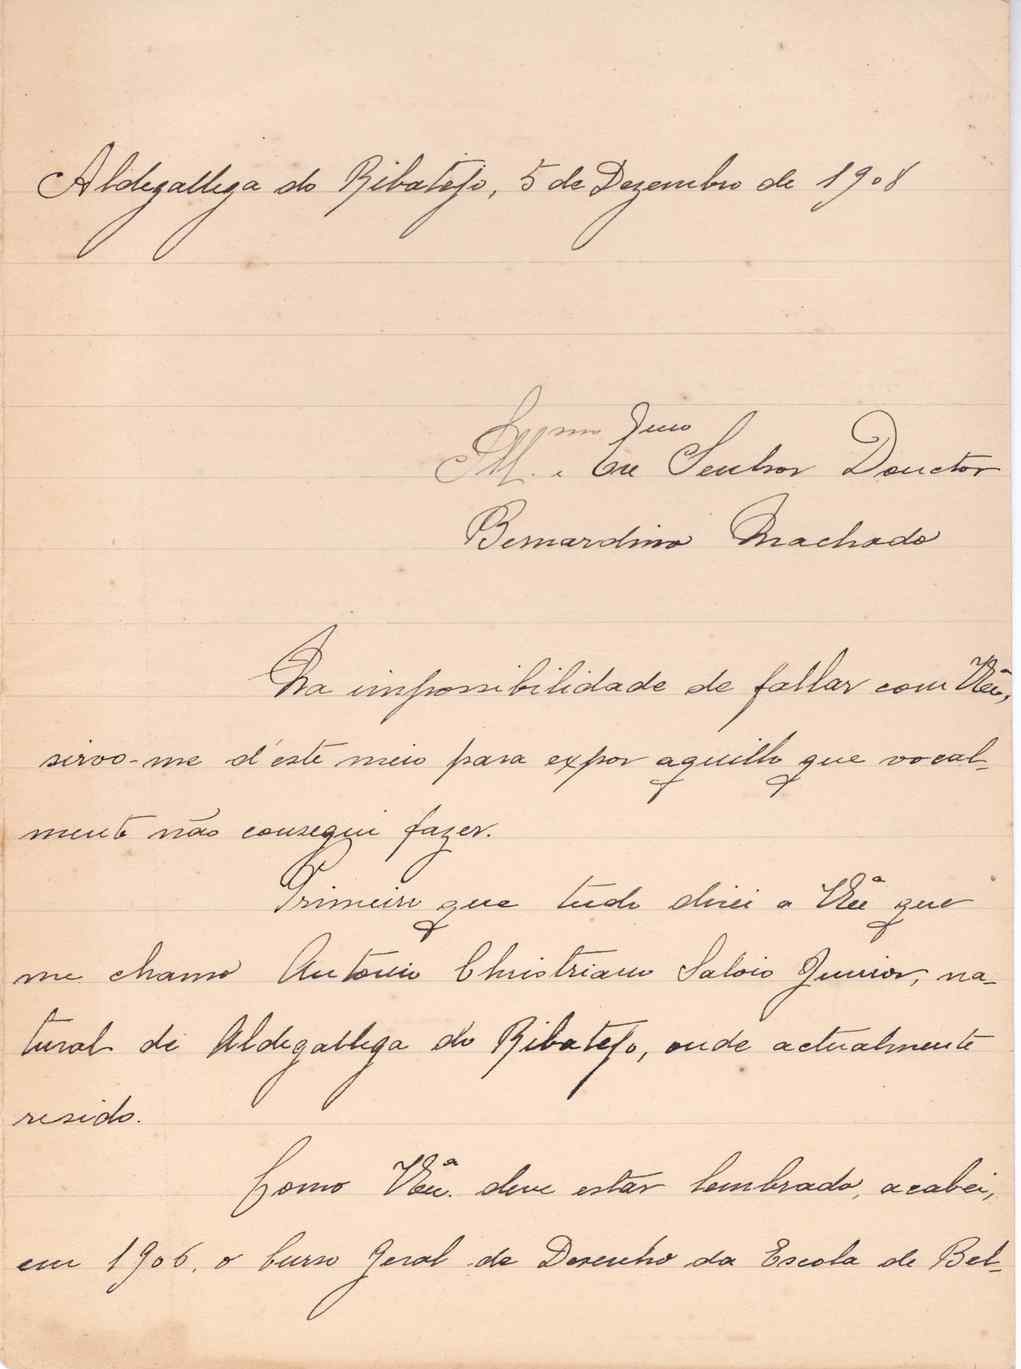 Aldegallega do Ribatejo, 5 de Dezembro de 1908
Ill.mo e Exmo Senhor Douctor
Bernardino Machado
Na impossibilidade de fallar com VExa,
sirvo-me d'este meio para expor aquillo que vocal-
mente não consegui fazer.
Primeiro que tudo direi a VExa que
me chamo Antonio Christiano Saloio Junior, na-
tural de Aldegallega do Ribatejo, onde actualmente
resido.
Como VExa. deve estar lembrado, acabei,
em 1906, o Curso Geral de Desenho da Escola de Bel-